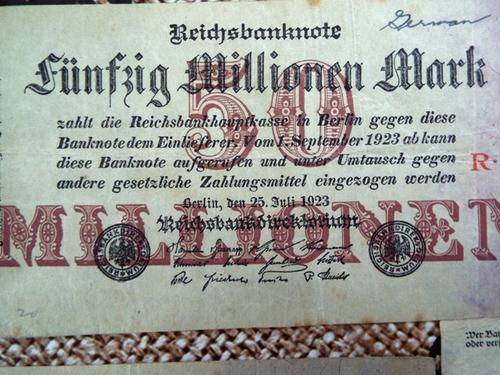 German
Reichsbanknote
Fünfzig Millionen Mark
50
zahlt die Reichsbankhauptkasse in Berlin gegen diese
Banknote dem Einlieferer. Vom 1. September 1923 ab kann
diese Banknote aufgerufen und unter Umtausch gegen
R·
andere gesetzliche Zahlungsmittel eingezogen werden
Berlin, den 25. Juli 1923
MILLIONEN
Reichsbankdirektorium
20
Wer Ban
oder ver